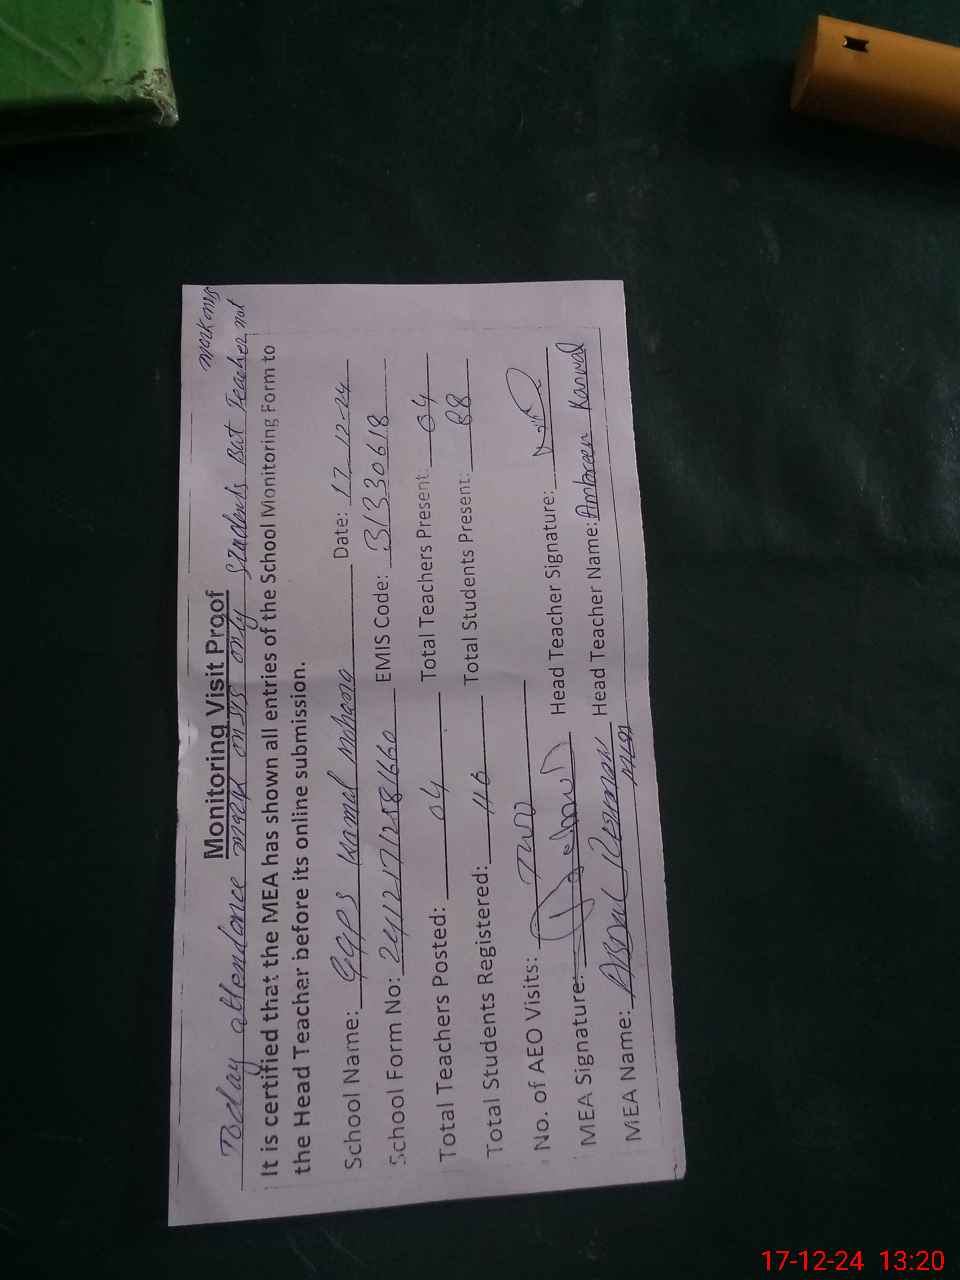 mark on sis
Today attendance mark on sis only students But Teacher not
Monitoring Visit Proof
It is certified that the MEA has shown all entries of the School Monitoring Form to
the Head Teacher before its online submission.
School Name: GGPS Date: 17-12-24
School Form No: EMIS Code: 31330618
Total Teachers Posted: 04 Total Teachers Present: 04
Total Students Registered: Total Students Present: 88
No. of AEO Visits: Two
MEA Signature: Head Teacher Signature:
MEA Name: Head Teacher Name: Ambreen Kanwal
17-12-24 13:20